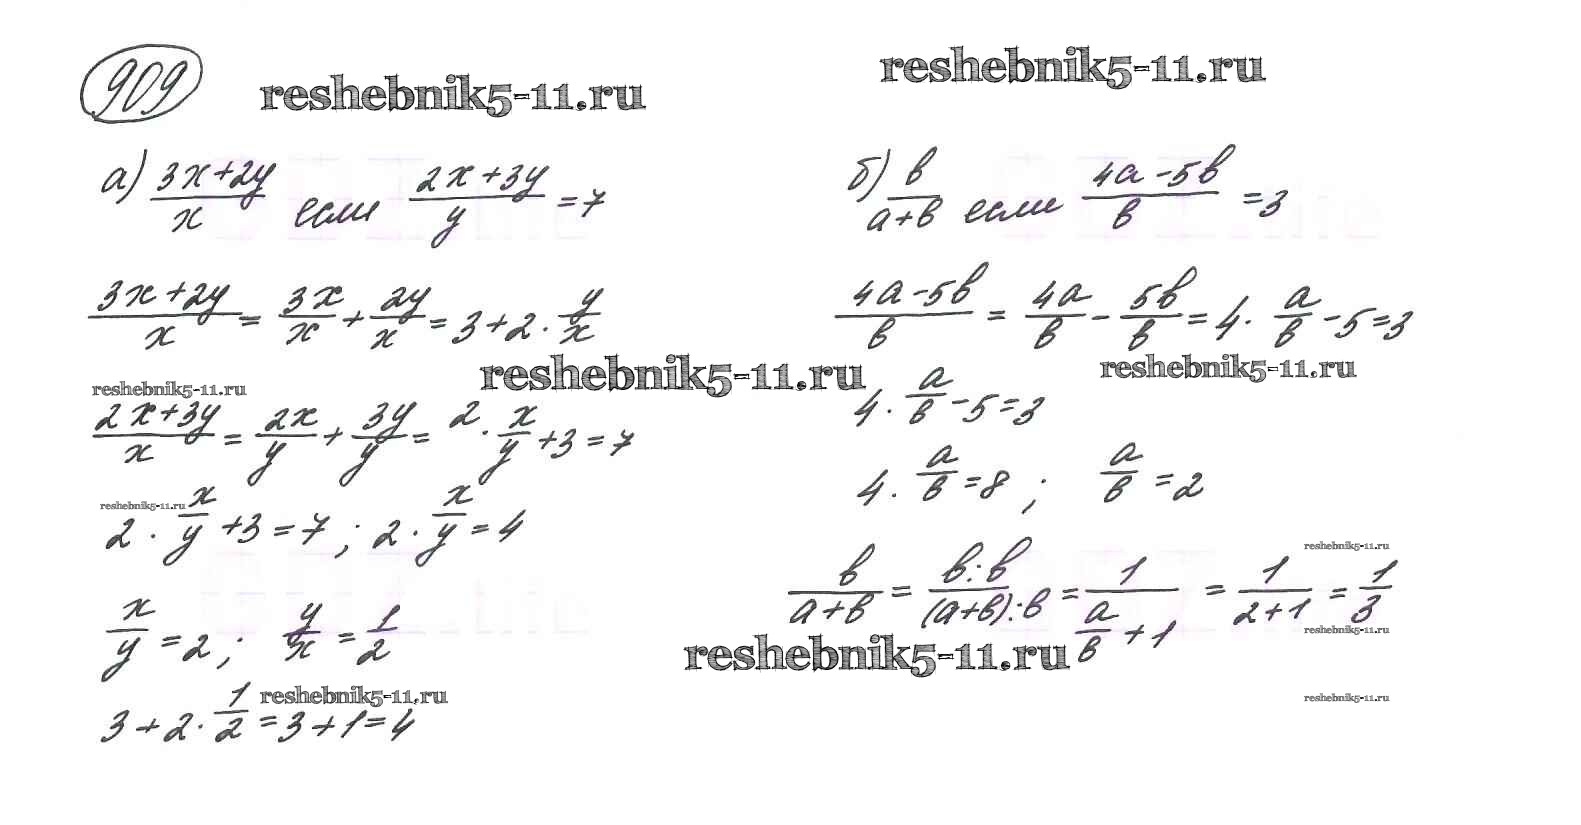 909
reshebnik5-11.ru
reshebnik5-11.ru
а) (3x+2y)/x если (2x+3y)/y = 7
(3x+2y)/x = 3x/x + 2y/x = 3+2·y/x
reshebnik5-11.ru
reshebnik5-11.ru
(2x+3y)/x = 2x/y + 3y/y = 2·x/y +3=7
reshebnik5-11.ru
2·x/y +3=7; 2·x/y = 4
x/y = 2; y/x = 1/2
reshebnik5-11.ru
3+2·1/2 = 3+1=4
б) в/(а+в) если (4а-5в)/в = 3
(4а-5в)/в = 4а/в - 5в/в = 4·а/в -5=3
reshebnik5-11.ru
4·а/в -5=3
4·а/в =8; а/в =2
reshebnik5-11.ru
в/(а+в) = в:в/(а+в):в = 1/(а/в +1) = 1/(2+1) = 1/3
reshebnik5-11.ru
reshebnik5-11.ru
reshebnik5-11.ru